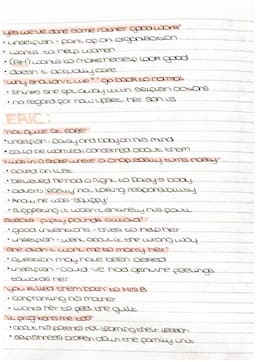 'yes we've done some rather good work'
• unselfish - part of an organisation
• wants to help women
• (BM) wants to make herself look good
• doesn't actually care
'why shouldn't we?' - go back to normal
• thinks she got away with selfish actions
• no regard for how upset her son is
ERIC:
'not quite at ease'
• unselfish - daisy and baby on his mind
• could be worried/concerned about them
'I was in a state where a chap easily turns nasty'
• acted on lust
• believed he had a right to Daisy's body
• adverb 'easily' not taking responsibility
• knew he was 'squiffy'
• suggesting it wasn't entirely his fault
steals 'fifty pounds all told'
• good intentions - tries to help her
• unselfish - went about it the wrong way
'she didn't want me to marry her'
• question may have been asked
• unselfish - could've had genuine feelings
towards her
'you killed them both
• confronting his mother
• wants her to feel the guilt
frightens me too'
• adult his parents not learning their lesson
• selfishness broken down the family unit